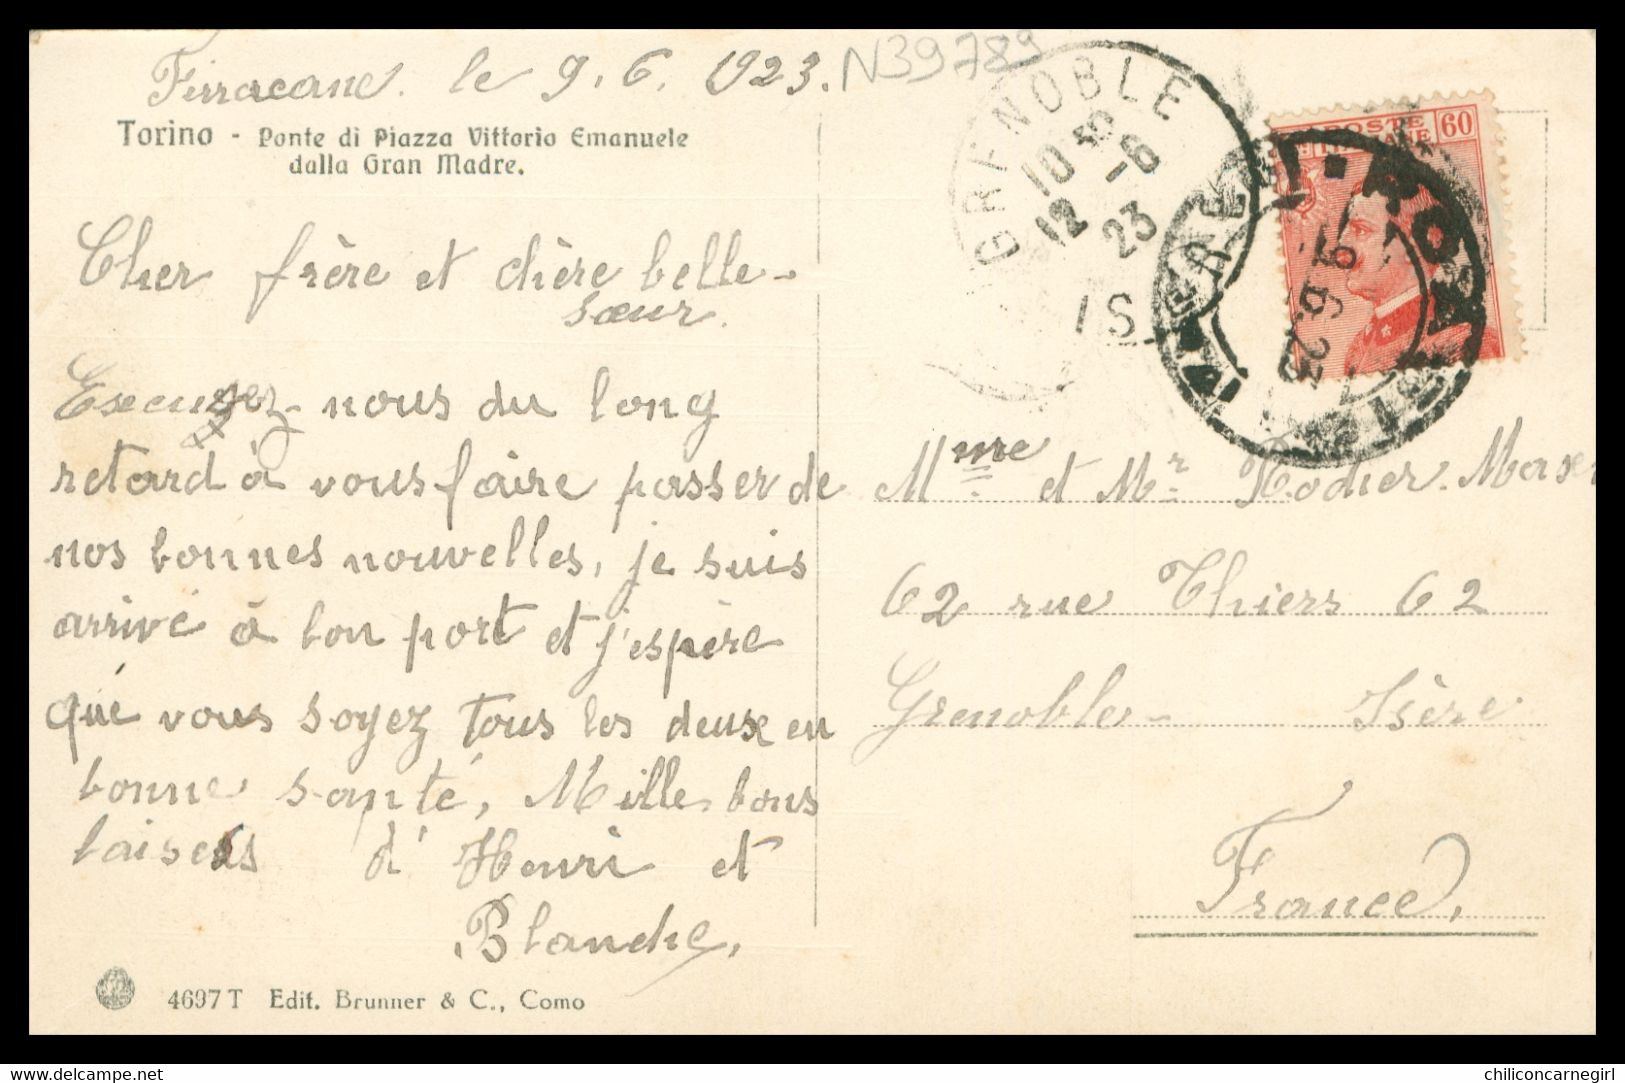 le 9. 6. 1923. N39789
Torino - Ponte di Piazza Vittorio Emanuele
dalla Gran Madre.
GRENOBLE
10
12 -6
23
POSTE 60
ROMA
9 6 23
Cher frère et chère belle-
sœur.
Excusez-nous du long
retard à vous faire passer de
nos bonnes nouvelles, je suis
arrivé à bon port et j'espère
que vous soyez tous les deux en
bonne santé, Mille bons
baisers d'Henri et
Blanche,
Mme et Mr Rodier
62 rue Thiers 62
Grenoble - Isère
France,
4697 T Edit. Brunner & C., Como
www.delcampe.net
chiliconcarnegirl